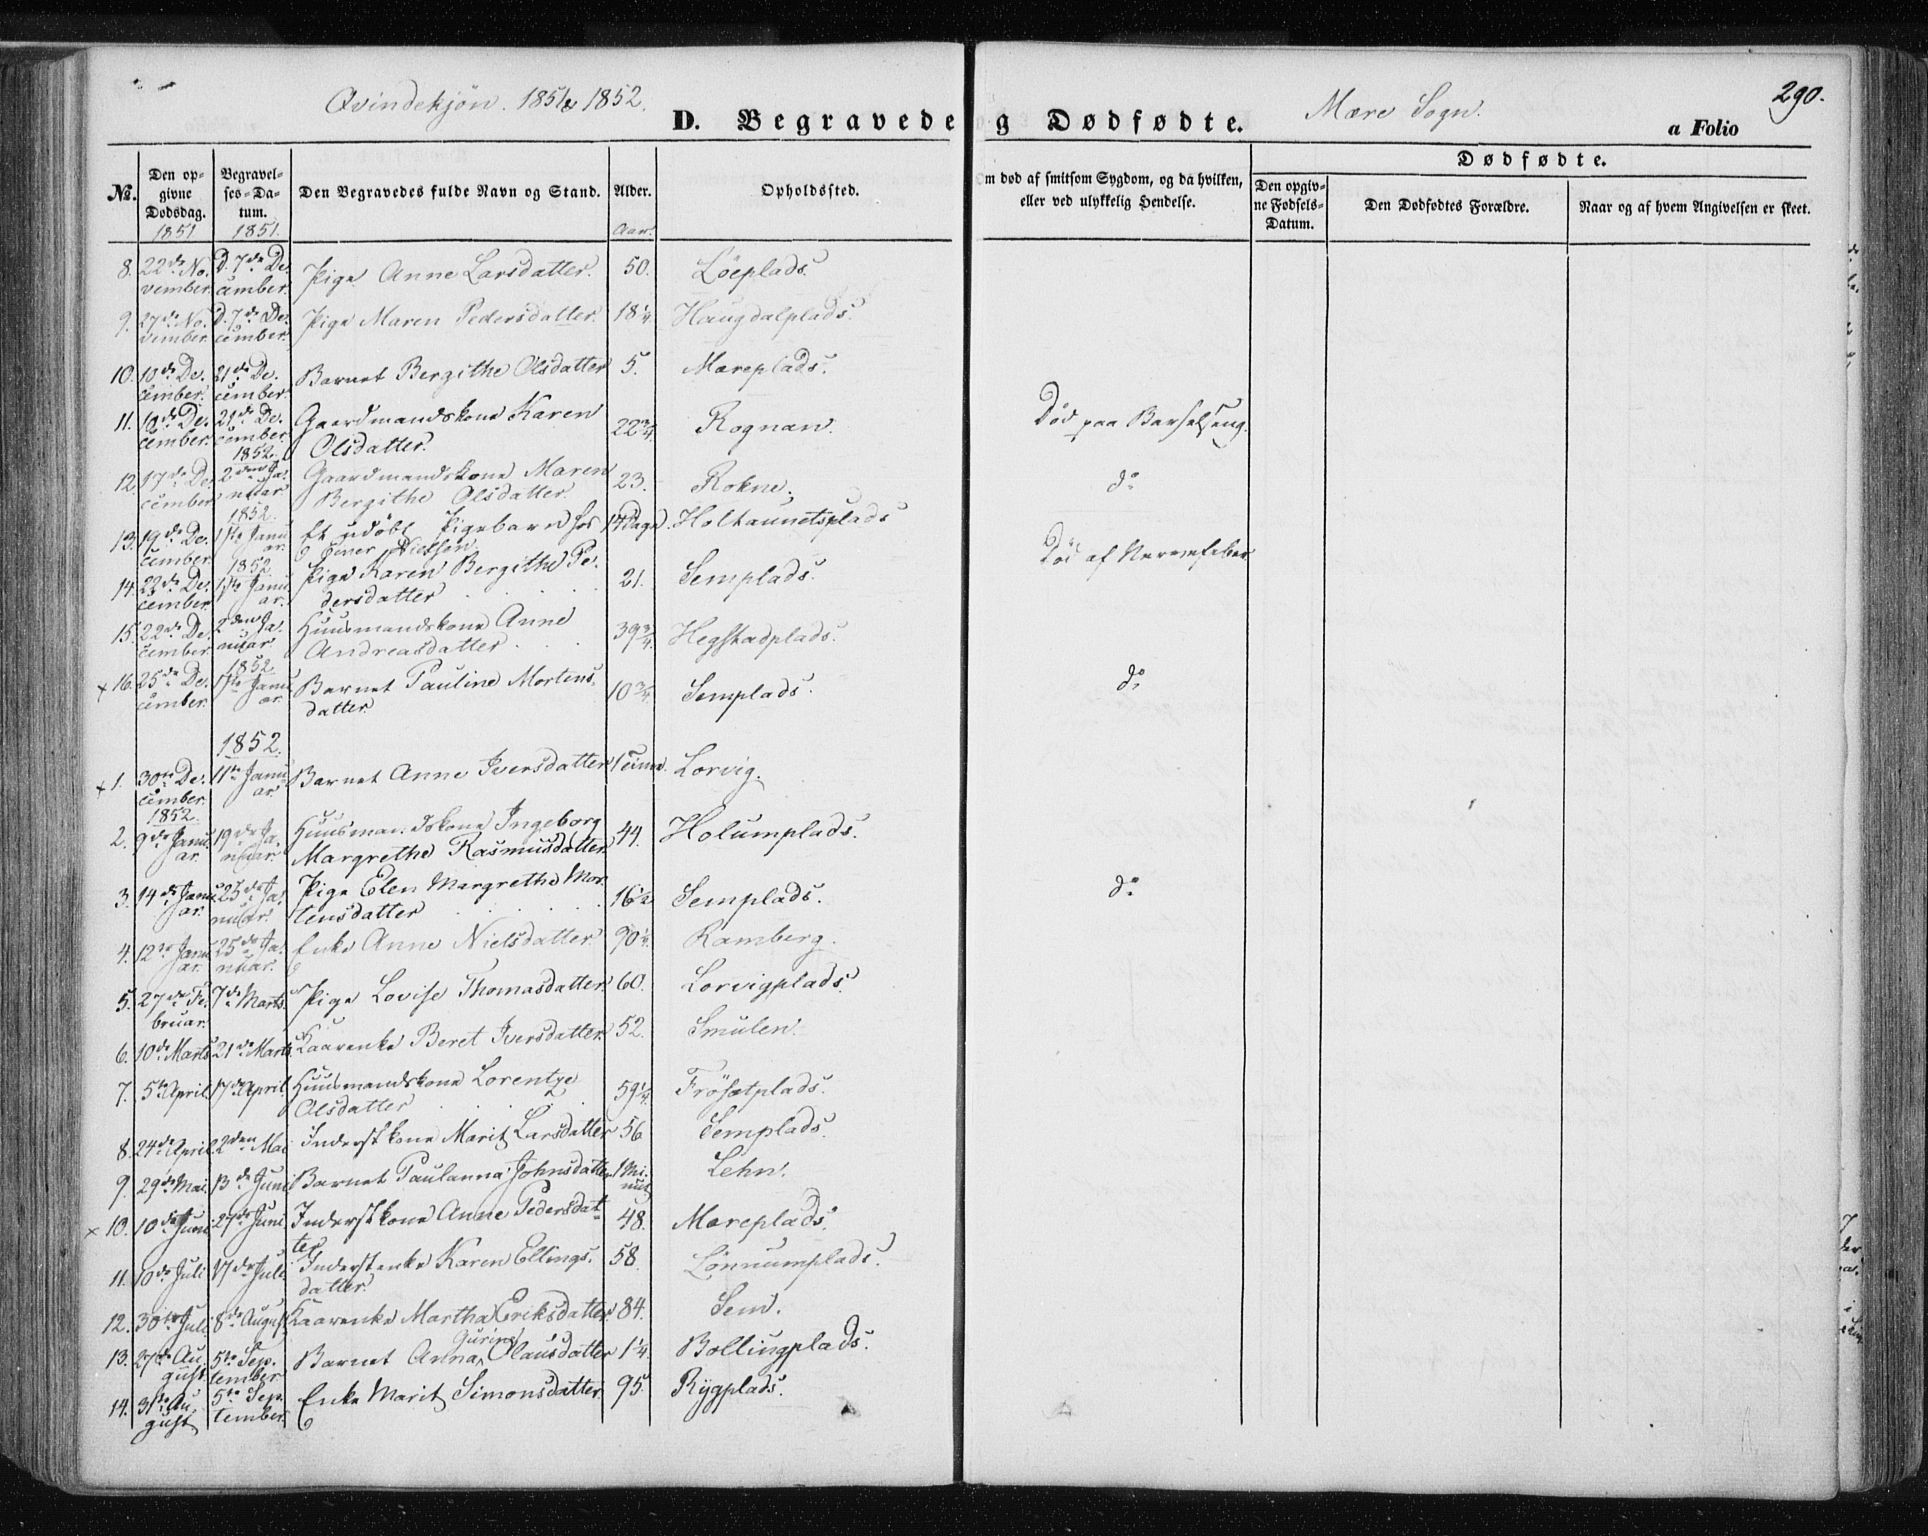 Qvindekjøn. 1851 & 1852.
D. Begravede og Dødfødte.
Mære Sogn.
290.
a Folio
No.
Den opgivne Dødsdag. 1851
Begravelses-Datum. 1851.
Den Begravedes fulde Navn og Stand.
Alder. Aar.
Opholdssted.
Om død af smitsom Sygdom, og da hvilken, eller ved ulykkelig Hendelse.
Dødfødte.
Den opgivne Fødsels-Datum.
Den Dødfødtes Forældre.
Naar og af hvem Angivelsen er skeet.
8. 22de November. D. 7de December. Pige Anne Larsdatter. 50. Löeplads.
9. 27de November. D. 7de December. Pige Maren Pedersdatter. 18 1/4 Haugdalplads.
10. 10de December. 21de December. Barnet Bergithe Olsdatter 5. Mæreplads.
11. 10de December. 21de December. Gaardmandskone Karen Olsdatter. 22 3/4 Rognan. Død paa Barselseng.
12. 17de December 1852. 2den Januar Gaardmandskone Maren Bergithe Olsdatter. 23. Rokne. do
13. 19de December. 1852. 1ste Januar. Et udøbt Pigebarn hos Einer Nielsen 14 Dage. Holtaunetsplads
14. 22de December. 1852 1ste Januar. Pige Karen Bergithe Pedersdatter 21. Semplads. Død af Nervefeber
15. 22de December. 2den Januar Huusmandskone Anne Andreasdatter 39 3/4. Hegstadplads.
× 16. 25de December. 1852 1ste Januar. Barnet Pauline Mortensdatter. 10 3/4 Semplads. do
1852.
× 1. 30te December. 11te Januar. Barnet Anne Iversdatter 1 Time. Lorvig.
1852.
2. 9de Januar. 19de Januar. Huusmandskone Ingeborg Margrethe Rasmusdatter. 44. Holumplads.
3. 14de Januar. 25de Januar. Pige Elen Margrethe Mortensdatter 16 1/2 Semplads. do
4. 12te Januar. 25de Januar. Enke Anne Nielsdatter. 90 1/4. Ramberg.
5. 27de Februar. 7de Marts. Pige Lovise Thomasdatter. 60. Lorvigplads.
6. 10de Marts 21de Marts. Kaarenke Beret Iversdatter. 52. Smulen.
7. 5te April. 17de April. Huusmandskone Lorentze Olsdatter 59 1/4. Frösetplads.
8. 24de April. 2den Mai Inderstkone Marit Larsdatter 56 Semplads.
9. 29de Mai. 13de Juni Barnet Paulanna Johnsdatter. 1 Minut Lehn.
× 10. 10de Juni. 27de Juni. Inderstkone Anne Pedersdatter 48. Mæreplads.
11. 10de Juli. 17de Juli. Inderstenke Karen Ellingsdatter. 58. Lönnumplads.
12. 30te Juli 8de August. Kaarenke Martha Eriksdatter 84. Sem.
13. 27de August. 5te September Barnet Anna Gurine Olausdatter 1 1/4. Bollingplads.
14. 31te August 5te September. Enke Marit Simonsdatter. 95. Rygplads.